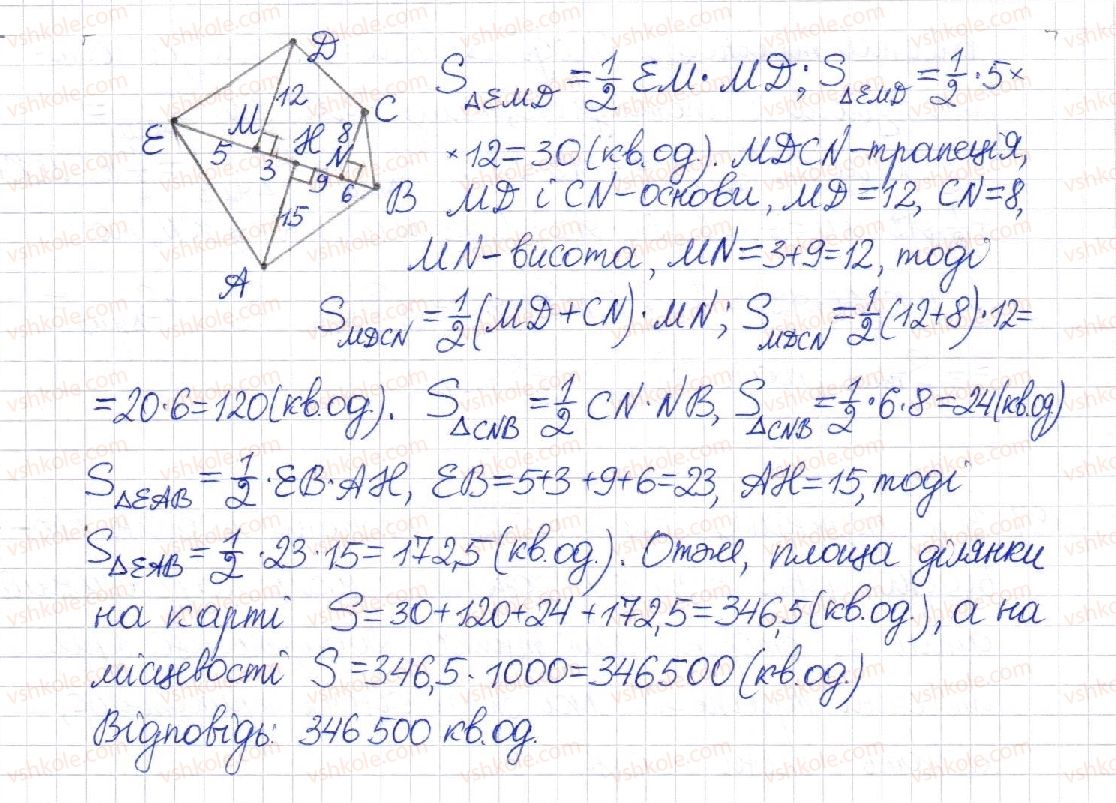 D
12
C
E
M
H
8
N
5
3
9
6
B
15
A
S△EMD = 1/2 EM · MD; S△EMD = 1/2 · 5 ×
× 12 = 30 (кв.од.). MDCN – трапеція,
MD і CN – основи, MD = 12, CN = 8,
MN – висота, MN = 3+9 = 12, тоді
SMDCN = 1/2 (MD + CN) · MN; SMDCN = 1/2 (12+8) · 12 =
= 20 · 6 = 120 (кв.од.). S△CNB = 1/2 CN · NB, S△CNB = 1/2 · 6 · 8 = 24 (кв.од)
S△EAB = 1/2 · EB · AH, EB = 5+3+9+6 = 23, AH = 15, тоді
S△EAB = 1/2 · 23 · 15 = 172,5 (кв.од.). Отже, площа ділянки
на карті S = 30 + 120 + 24 + 172,5 = 346,5 (кв.од.), а на
місцевості S = 346,5 · 1000 = 346500 (кв.од.)
Відповідь: 346 500 кв.од.
vshkole.com